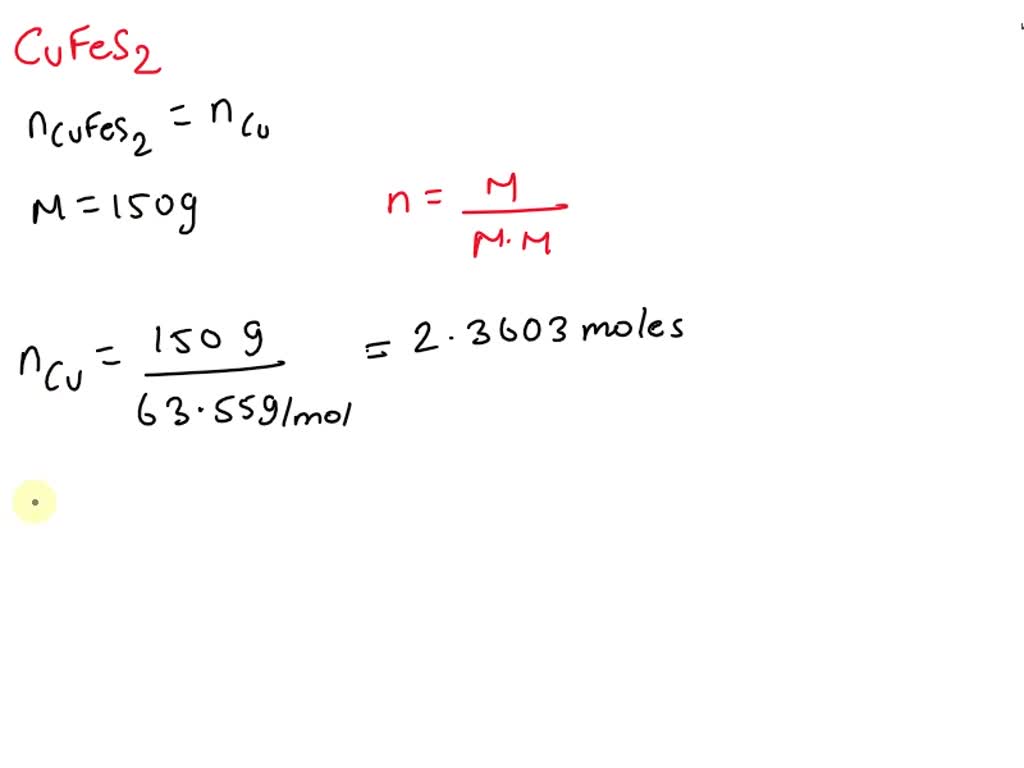 CuFeS2
nCuFeS2 = nCu
M = 150g
n = M / M.M
nCu = 150 g / 63.55g/mol = 2.3603 moles